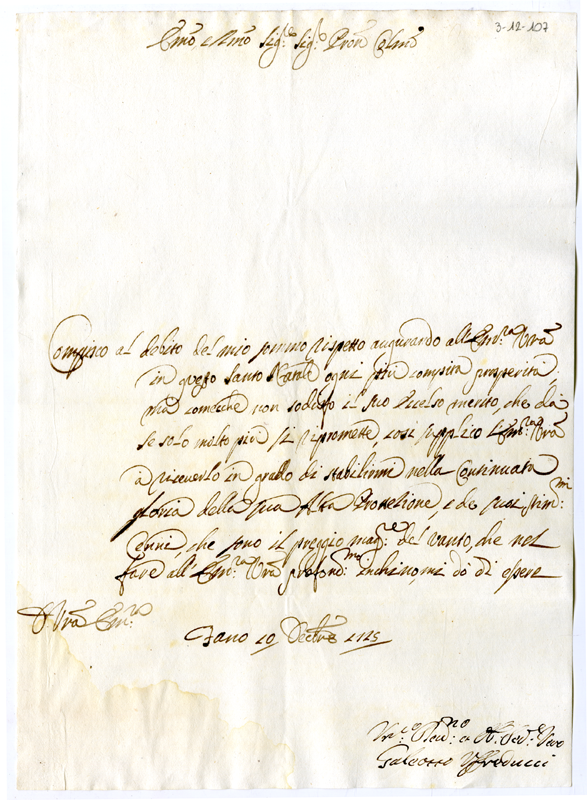 3-12-107
Emo e Rmo Sig.e Sig.e Pron Colmo
Compisco al debito del mio sommo rispetto augurando all'Em.za Vra
in questo Santo Natale ogni più compita prosperità,
mà comecche non sodisfo il suo Eccelso merito, che dà
se solo molto più si ripromette, così supplico l'Em.za Vra
a riceverlo in grado di stabilirmi nella Continuata
gloria della sua Alta Protetione, e de suoi stim:mi
Cenni, che sono il preggio mag.re del vanto, che nel
fare all'Em.za Vra profond:mo Inchino, mi dò di essere
D Vra Em.za
Fano 19 Decbre
Galeotto Uffreducci